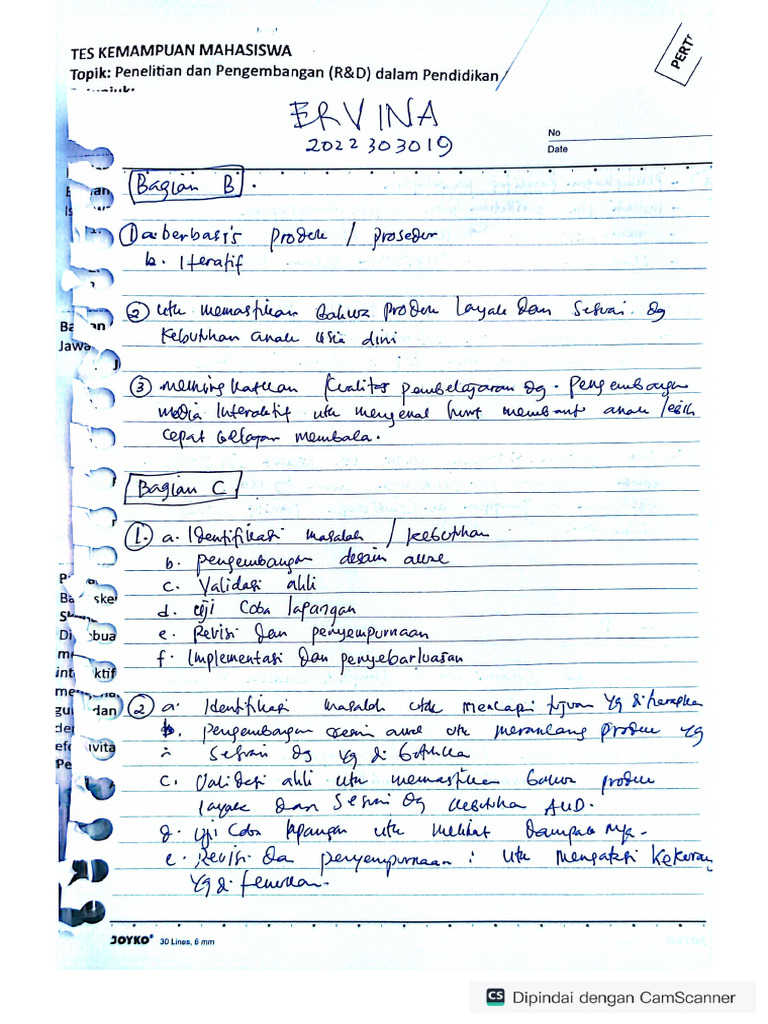 TES KEMAMPUAN MAHASISWA
Topik: Penelitian dan Pengembangan (R&D) dalam Pendidikan
PERT
ERVINA
2022303019
No
Date
Bagian B.
① a berbasis produk / prosedur
b. Iteratif
② utk memastikan bahwa produk layak dan sesuai dg
kebutuhan anak usia dini
③ meningkatkan kualitas pembelajaran dg. pengembangan
media interaktif utk mengenal huruf membantu anak lebih
cepat belajar membaca.
Ba an
Jawa
Bagian C
①. a. Identifikasi masalah / kebutuhan
b. pengembangan desain awal
c. Validasi ahli
d. uji coba lapangan
e. Revisi dan penyempurnaan
f. Implementasi dan penyebarluasan
② a. Identifikasi masalah utk mencapai tujuan yg diharapkan
b. pengembangan desain awal utk merancang produk yg
sesuai dg yg di butuhkan
c. Validasi ahli utk memastikan bahwa produk
layak dan sesuai dg kebutuhan AUD.
d. uji coba lapangan utk melihat dampaknya-
e. Revisi dan penyempurnaan : utk mengatasi kekurang
yg di temukan.
JOYKO 30 Lines, 6 mm
CS Dipindai dengan CamScanner